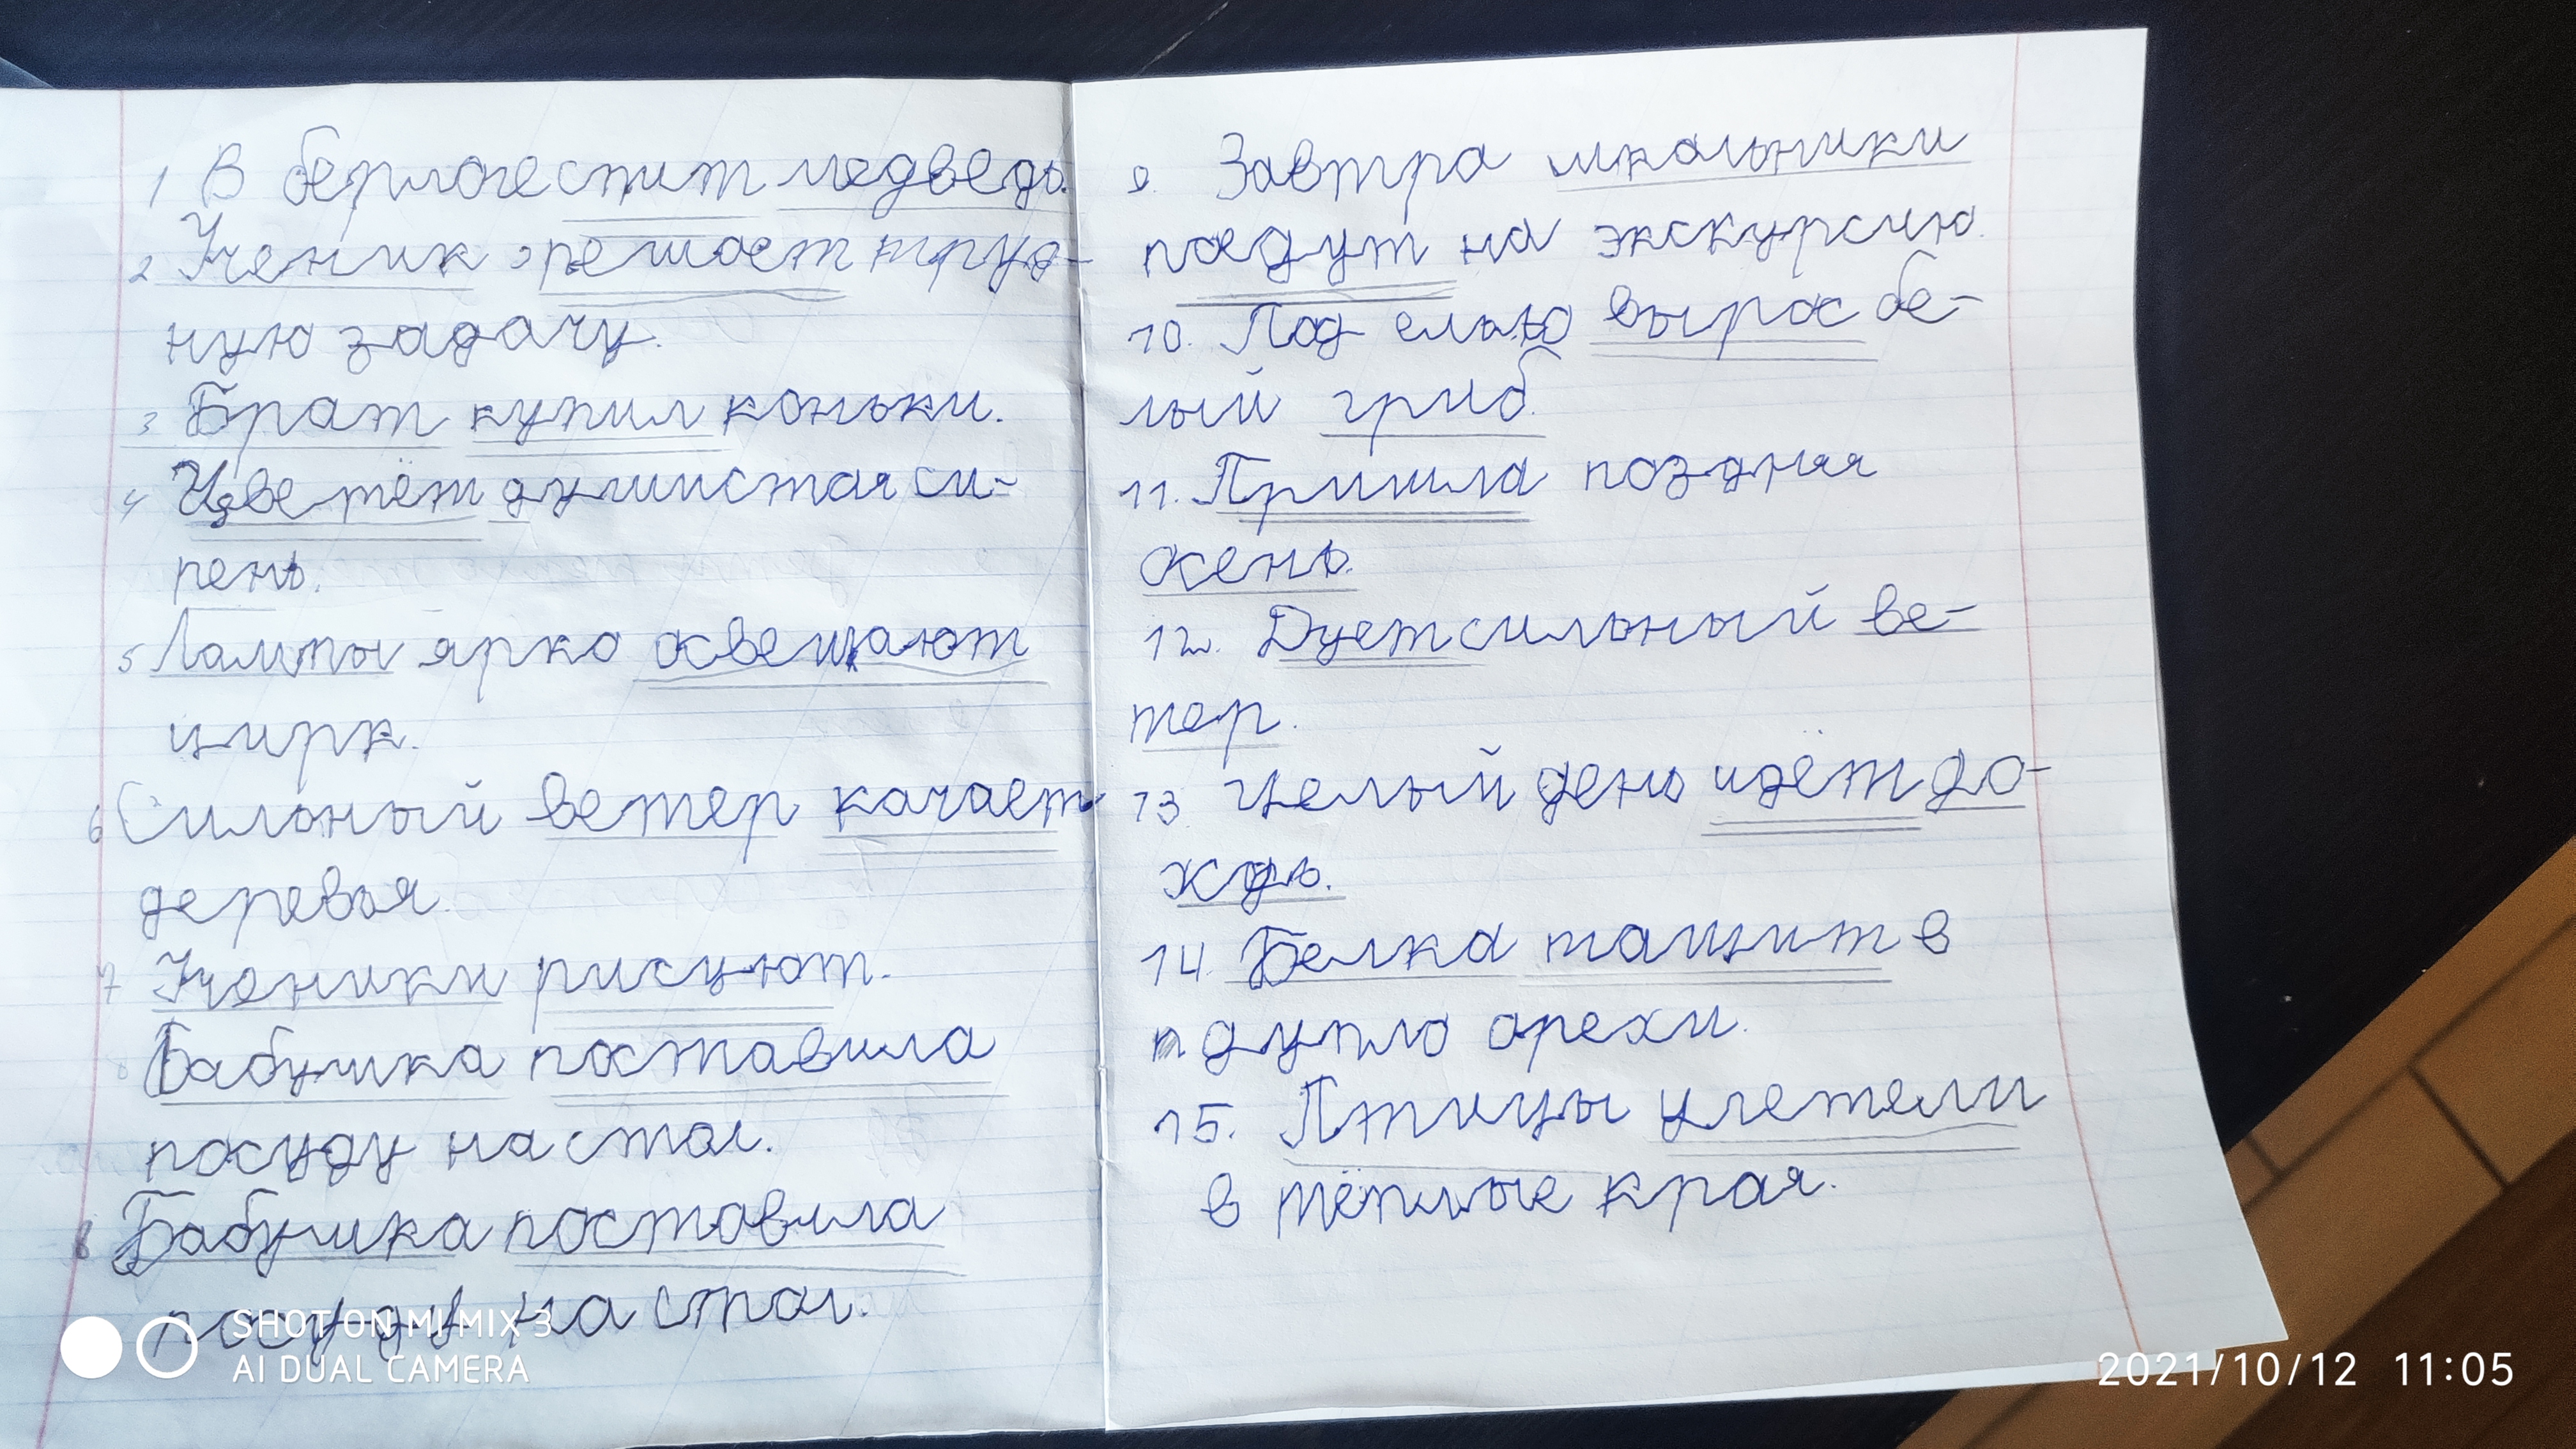 1 В берлоге спит медведь.
2 Ученик решает труд-
ную задачу.
3 Брат купил коньки.
4 Цветёт душистая си-
рень.
5 Лампы ярко освещают
цирк.
6 Сильный ветер качает
деревья.
7 Ученики рисуют.
8 Бабушка поставила
посуду на стол.
8 Бабушка поставила
посуду на стол.
9. Завтра школьники
поедут на экскурсию.
10. Под елью вырос бе-
лый гриб.
11. Пришла поздняя
осень.
12. Дует сильный ве-
тер.
13 Целый день идёт до-
ждь.
14. Белка тащит в
дупло орехи.
15. Птицы улетели
в тёплые края.
SHOT ON MI MIX 3
AI DUAL CAMERA
2021/10/12 11:05